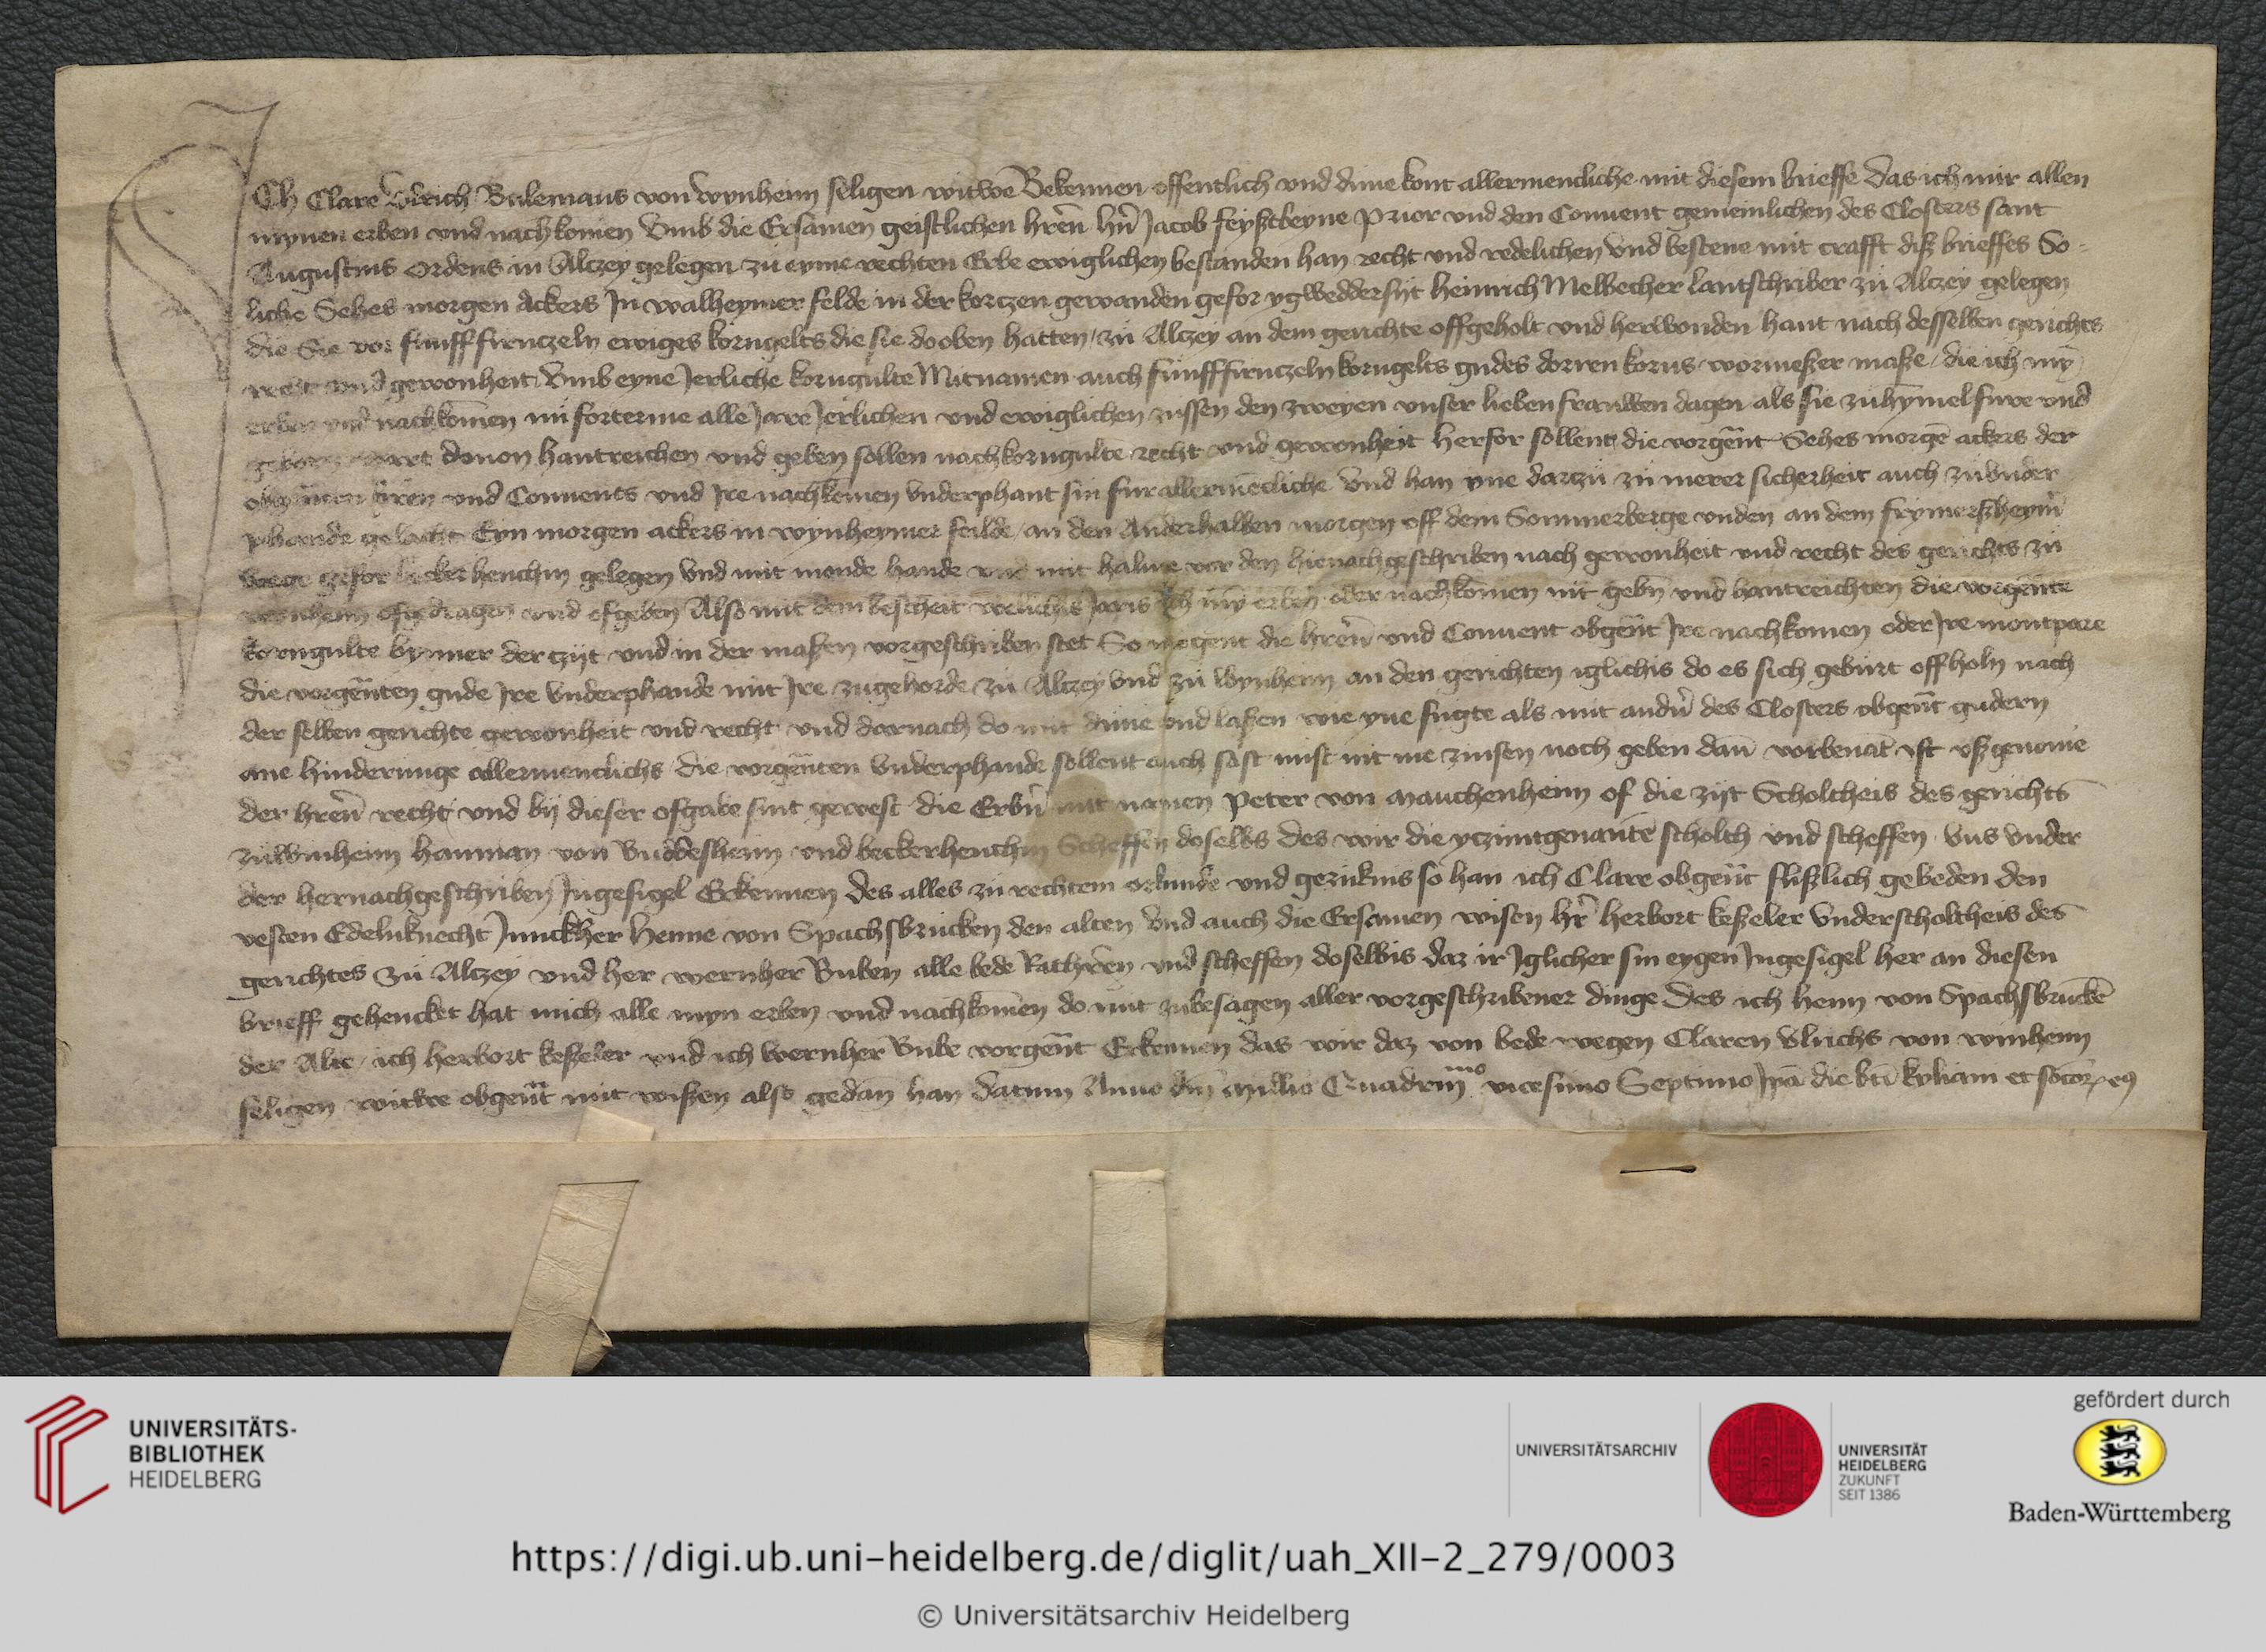 Ich Clare Ulrich Bulemans von wynheim seligen witwe Bekennen offentlich und dune kont allermencliche mit diesem brieffe das ich mir allen
mynen erben und nachkomen Umb die Ersamen geistlichen hren hn Jacob feyßbeyne Prior und den Convent gemeinlichen des Closters sant
Augustins Ordens in Alczey gelegen zu eyme rechten Erbe ewiglichen bestanden han recht und redelichen und bestene mit crafft diß brieffes So-
liche Sehes morgen Ackers Jn walheymer felde in der kortzen gewanden gefor Heinrich Melbecher lantschriber zu Alczey gelegen
die Sie vor funff firnczeln ewiges korngelts die sie do oben hatten zu Alczey an dem gerichte offgeholt und herwonden hant nach desselben gerichts
recht und gewonheit Umb eyne Jerliche korngulte Mitnamen auch funff firnczeln korngelts gudes dorren korns wormeßer maße die ich my
erben und nachkomen nu forterme alle Jare Jerlichen und ewiglichen zussen den zweyen unser lieben frauwen dagen als sie zuhymel fure und
wart davon hantreichen und geben sollen nach korngulte recht und gewonheit herfor sollent die vorgent Sehes morge ackers der
hren und Convents und Jre nachkomen underphant sin fur allermecliche Und han yne darzu zu merer sicherheit auch zu under
phande gelacht Eyn morgen ackers in wynheymer feilde an den Anderhalben morgen off dem Sommerberge unden an dem frymerßheym
wege gefor becker henchin gelegen Und mit monde hande und mit halme vor den hienachgeschriben nach gewonheit und recht des gerichts zu
wynheim ofgedragen und ofgeben Also mit dem bescheit welichs Jaris Ich my erben oder nachkomen nit gebn und hantreichten die vorgente
korngulte bynner der zijt und in der maßen vorgeschriben stet So mogent die hren und Convent obgent Jre nachkomen oder Jre montpare
die vorgenten gude Jre underphande mit Jre zugehorde zu Alczey Und zu wynheim an den gerichten iglichis do es sich geburt offholn nach
der selben gerichte gewonheit und recht und dornach do mit dune und laßen wie yne fugte als mit andn des Closters obgent gudern
ane hinderunge allermenclichs die vorgenten Underphande sollent auch sost nust nit me zinsen noch geben dan vorbenat ist ußgenome
der hren recht und bij dieser ofgabe sint gewest die Erbn mit namen Peter von mauchenheim of die zijt Scholtheis des gerichts
zu winheim hanman von Buddesheim und beckerhenchin Scheffen doselbs Des wir die yczuntgenante scholth und scheffen uns under
der hernachgeschriben Jngesigel Erkennen Des alles zu rechtem orkunde und gezuknis so han ich Clare obgent flißlich gebeden den
vesten Edelnknecht Junckher Henne von Spachsbrucken den alten Und auch die Ersamen wisen hr herbort keßeler Underscholtheis des
gerichtes zu Alczey und her wernher Buben alle bede Rathren und scheffen doselbis daz ir Jglicher sin eygen Jngesigel her an diesen
brieff gehencket hat mich alle myn erben und nachkomen do mit zubesagen aller vorgeschribener dinge Des ich henn von Spachsbrucke
der Alte ich herbort keßeler und ich wernher Bube vorgent Erkennen das wir daz von bede wegen Claren Ulrichs von winheim
seligen witwe obgent mit wißen also gedan han Datum Anno dni millio Quadrinmo vicesimo Septimo Jpa die bti kyliani et socor eq
UNIVERSITÄTS-
BIBLIOTHEK
HEIDELBERG
UNIVERSITÄTSARCHIV
UNIVERSITÄT
HEIDELBERG
ZUKUNFT
SEIT 1386
gefördert durch
Baden-Württemberg
https://digi.ub.uni-heidelberg.de/diglit/uah_XII-2_279/0003
© Universitätsarchiv Heidelberg